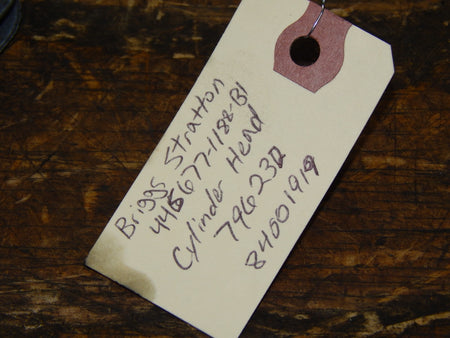 Briggs Stratton
445677-1188-B1
Cylinder Head
796232
84001919